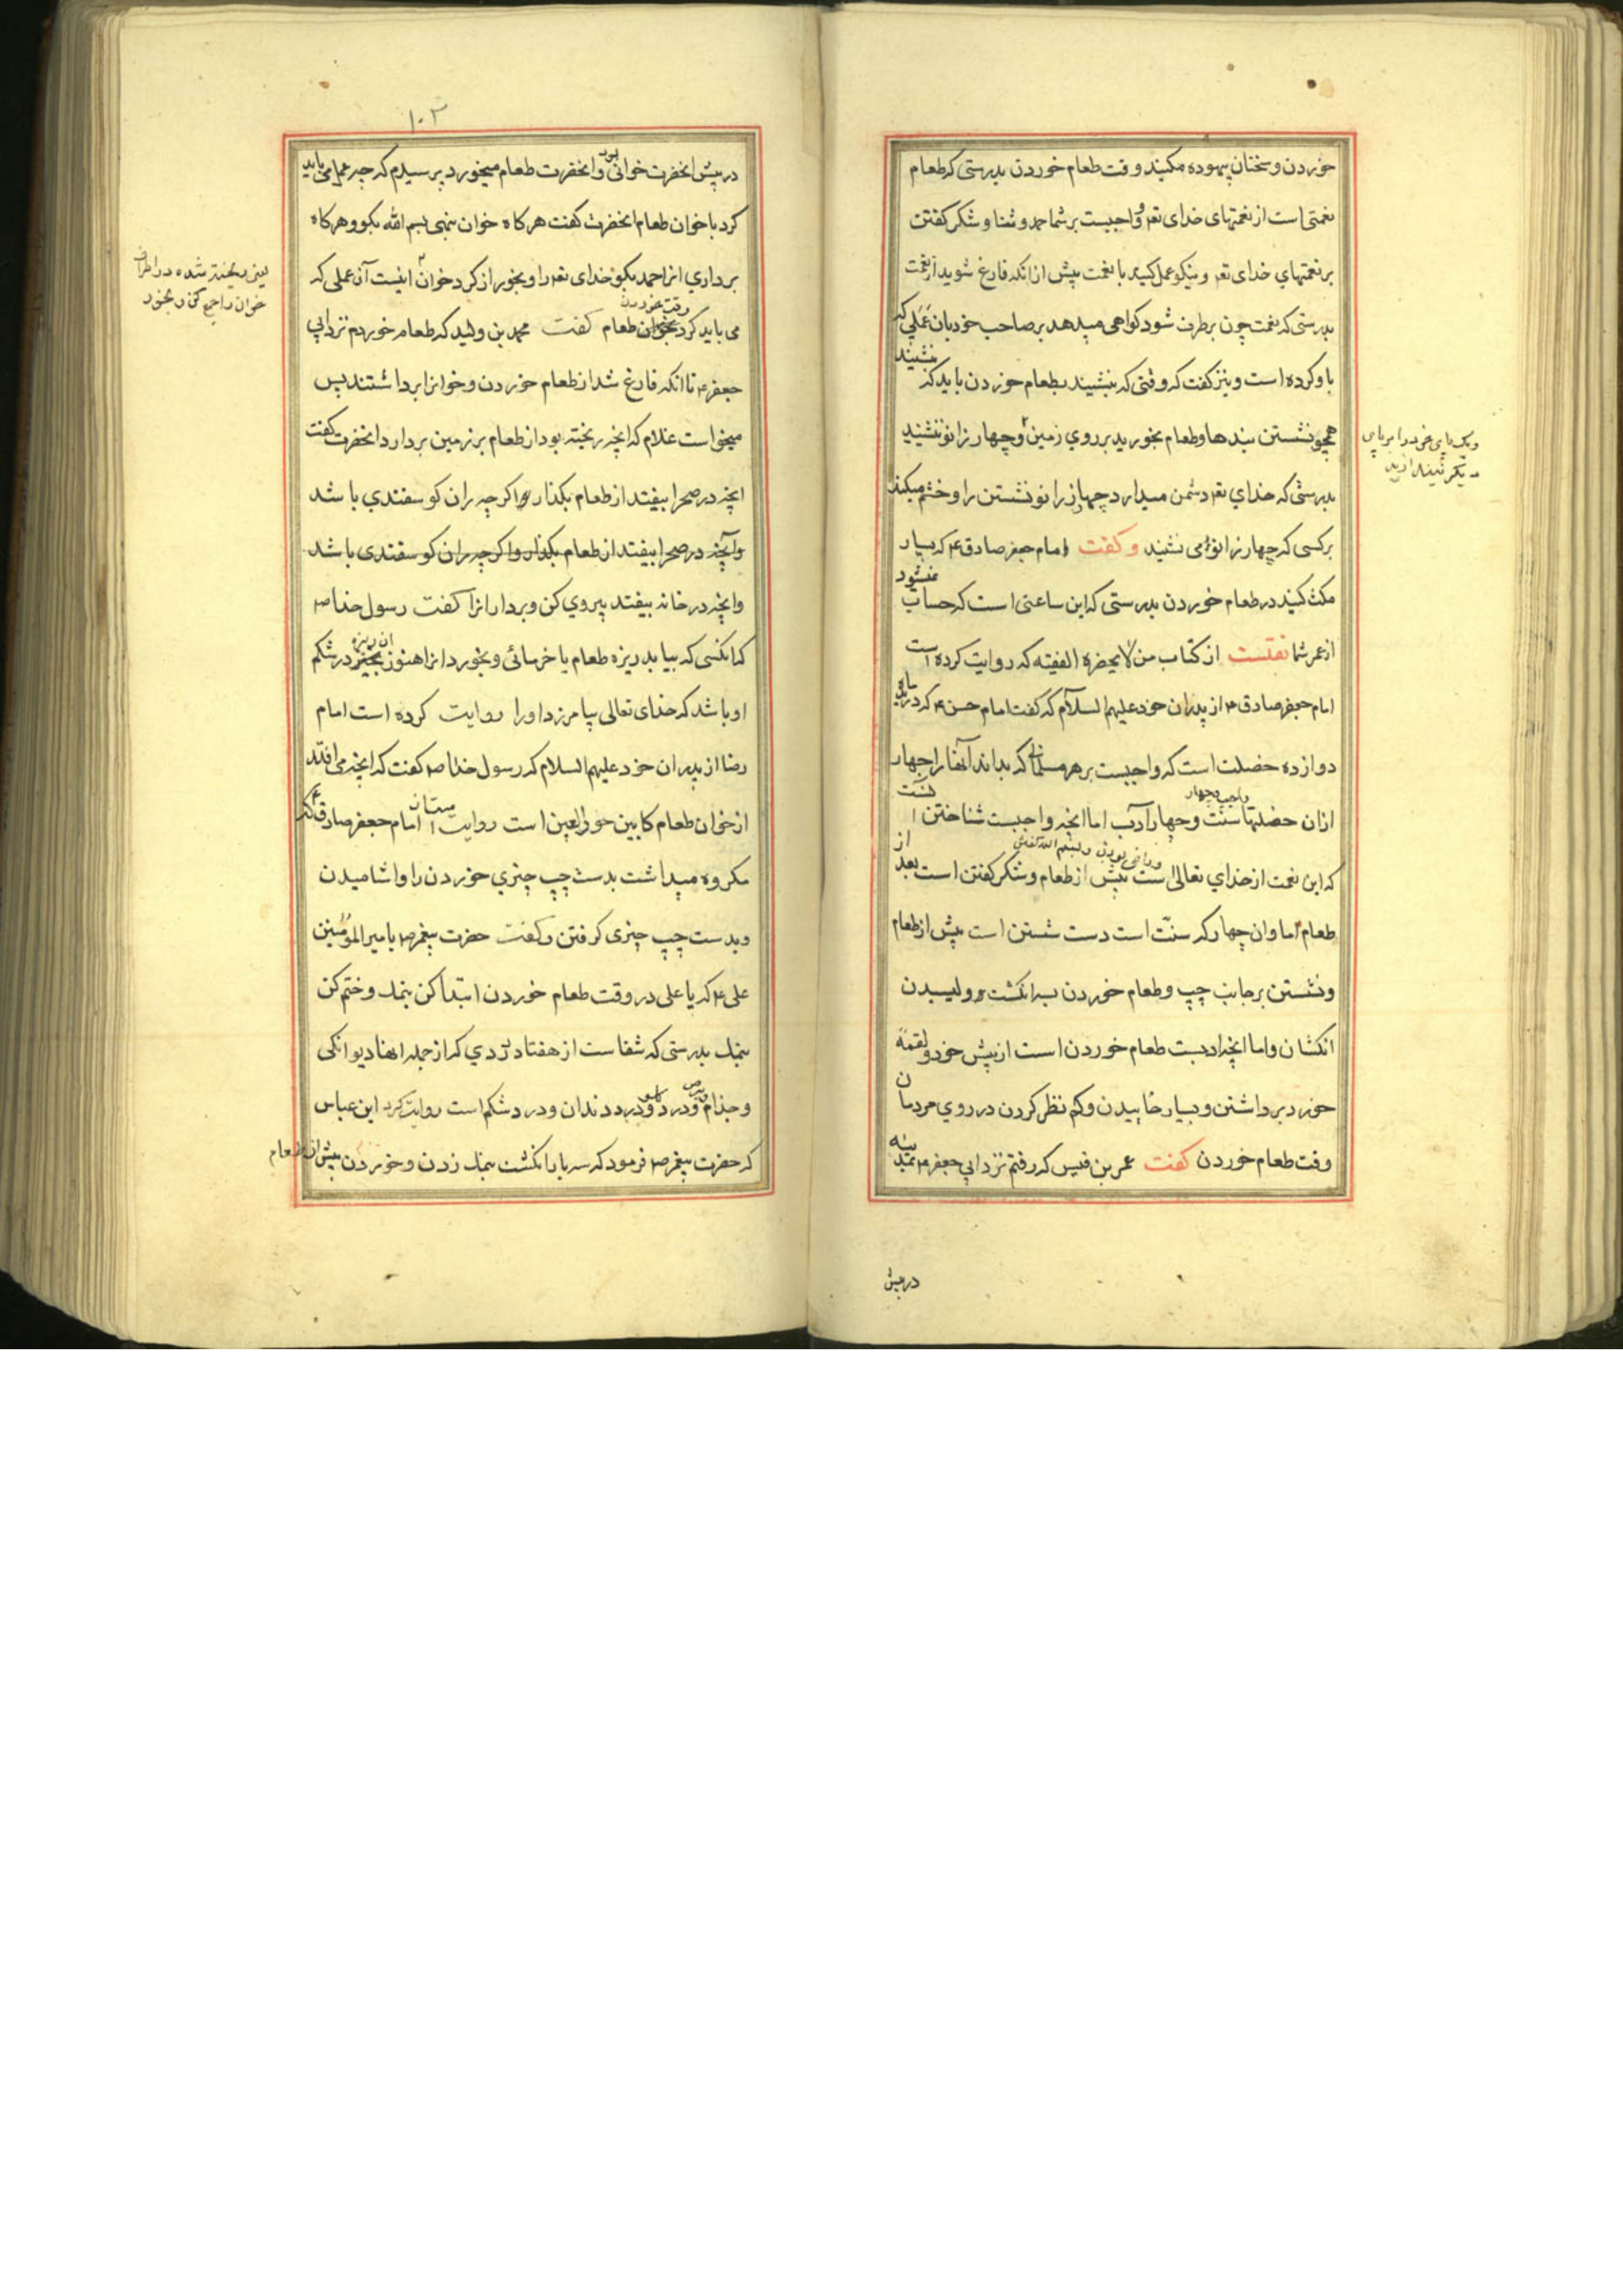 خوردن و سخنان بیهوده مکنید وقت طعام خوردن بدرستی که طعام
نعمتی است از نعمتهای خدای تعم و واجبست بر شما حمد و ثنا و شکر کفتن
بر نعمتهای خدای تعم و نیکو عمل کنید با نعمت پیش از انکه فارغ شوید از نعمت
بدرستی که نعمت چون برطرف شود کواهی میدهد بر صاحب خود بان عملی که
باو کرده است و نیز کفت که وقتی که بنشیند بطعام خوردن باید که بنشیند
همچو نشستن بندها و طعام بخورید بر روی زمین و چهار زانو ننشینید
ویک پای خود را بر پای
دیکر نیندازید
بدرستی که خدای تعم دشمن میدارد چهار زانو نشستن را و خشم میکند
بر کسی که چهار زانو می نشیند و کفت امام جعفر صادق ع که بسیار
مکث کنید در طعام خوردن بدرستی که این ساعتی است که حساب نمیشود
از عمر شما نقلست از کتاب من لایحضره الفقیه که روایت کرده است
امام جعفر صادق ع از پدران خود علیهم السلام که کفت امام حسن ع که در مایده
دوازده خصلت است که واجبست بر هر مسلمانی که بداند آنها را چهار
ازان خصلتها واجب و چهار سنت و چهار آدب اما انچه واجبست شناختن است
که این نعمت از خدای تعالی است و راضی بودن و بسم الله کفتن پیش از طعام و شکر کفتن است بعد از
طعام اما وان چهار که سنت است دست شستن است پیش از طعام
و نشستن بر جانب چپ و طعام خوردن بسه انکشت و ولیسیدن
انکشان واما انچه ادبست طعام خوردن است از پیش خود و لقمه
خورد برداشتن و بسیار خاییدن و کم نظر کردن در روی مردمان
وقت طعام خوردن کفت عمر بن قیس که رفتم نزد ابی جعفر ع بمدینه
در پیش
۱۰۲
در پیش انحضرت خوانی بود و انحضرت طعام میخورد پرسیدم که چه عمل می باید
کرد با خوان طعام انحضرت کفت هرکاه خوان بنهی بسم الله بکو و هرکاه
برداری انرا حمد بکو خدای تعم را و بخور از کرد خوان اینست آن عملی که
یعنی ریخته شده در اطراف
خوان را جمع کن و بخور
می باید کرد وقت خوردن بخوان طعام کفت محمد بن ولید که طعام خوردم نزد ابی
جعفر ع تا انکه فارغ شد از طعام خوردن و خوانرا برداشتند پس
میخواست غلام که انچه ریخته بود از طعام بر زمین بردارد انحضرت کفت
انچه در صحرا بیفتد از طعام بکذار و اکرچه ران کوسفندی باشد
وآنچه در صحرا بیفتد از طعام بکذار و اکرچه ران کوسفندی باشد
وانچه در خانه بیفتد پیروی کن و بردار انرا کفت رسول خدا ص
که انکسی که بیابد ریزه طعام یا خرمائی و بخورد انرا هنوز آن ریزه در شکم
او باشد که خدای تعالی بیامرزد او را روایت کرده است امام
رضا از پدران خود علیهم السلام که رسول خدا ص کفت که انچه می افتد
از خوان طعام کابین حور العین است روایت است از امام جعفر صادق ع که
مکروه میداشت بدست چپ چیزی خوردن را و اشامیدن
و بدست چپ چیزی کرفتن و کفت حضرت پیغمبر ص بامیر المؤمنین
علی ع که یا علی در وقت طعام خوردن ابتدا کن بنمک و ختم کن
بنمک بدرستی که شفاست از هفتاد دردی که از جمله انها دیوانکی
و جذام و برص و درد کلو و درد دندان و درد شکم است روایت کرد ابن عباس
که حضرت پیغمبر ص فرمود که سه بار انکشت بنمک زدن و خوردن پیش از طعام